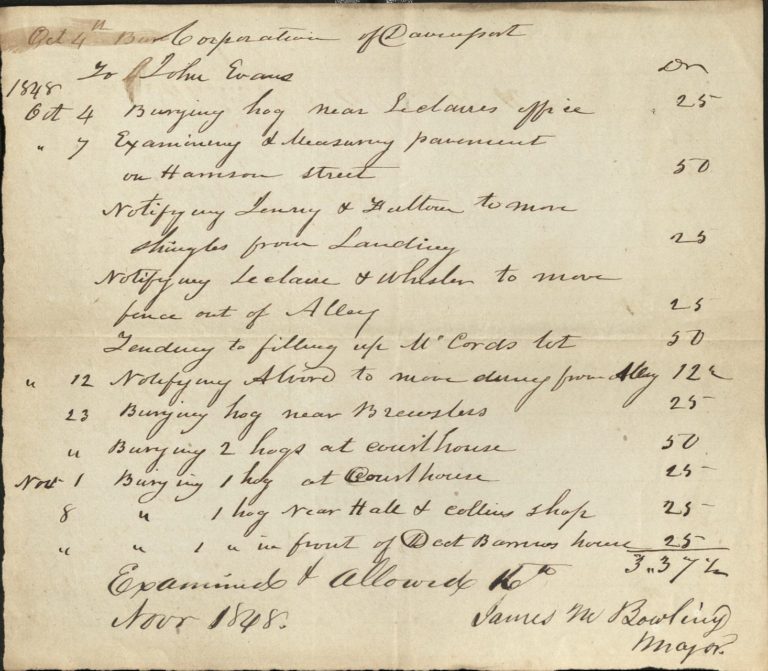 Oct 4th Bur Corporation of Davenport
To John Evans Dr
1848
Oct 4 Burying hog near Leclaires office 25
" 7 Examining & Measuring pavement
on Harrison street 50
Notifying & to move
shingles from Landing 25
Notifying Leclaire & Whisler to move
fence out of Alley 25
Tending to filling up McCords lot 50
" 12 Notifying Alvord to move dung from Alley 12½
23 Burying hog near Brewsters 25
" Burying 2 hogs at courthouse 50
Nov 1 Burying 1 hog at Courthouse 25
8 " 1 hog Near Hall & Collins shop 25
" " 1 " in front of house 25
3"37½
Examined & Allowed
Novr 1848.
James M Bowling
Major.